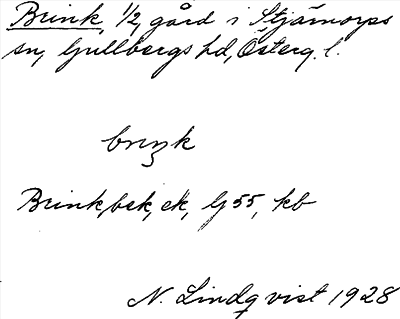 Brink, 1/2 gård i Stjärnorps
sn, Gullbergs hd, Österg. l.
briŋk
Brink, bsk, ek, G 55, kb
N. Lindqvist 1928